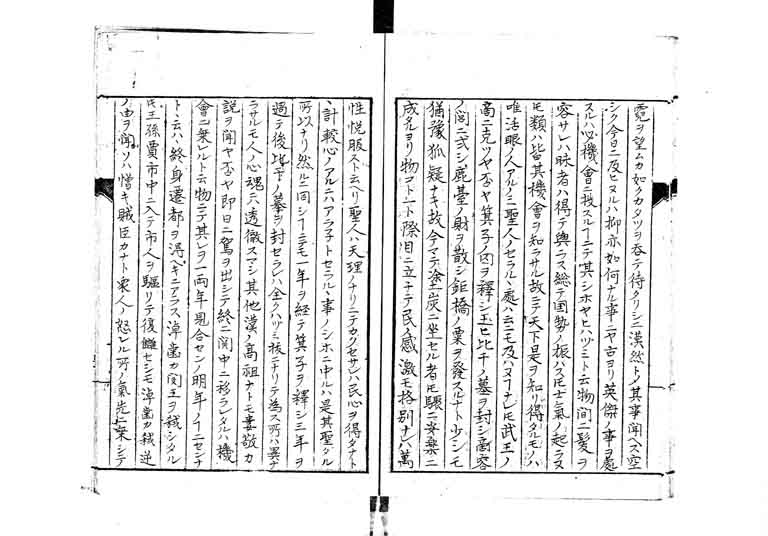 霓ヲ望ムカ如クカタツヲ呑テ待タリシニ漠然トノ其事聞ヘス空
シク今日ニ及ヒヌルハ抑亦如何ナル事ニヤ古ヨリ英傑ノ事ヲ處
スル必機會ニ投スルーニテ其シホヤヒハツミト云物間ニ髪ヲ
容サレハ昧者ハ得テ與ラス総テ国勢ノ振ハスモ士氣ノ起ラヌ
モ類ハ皆其機會ヲ知ラサル故ニテ天下是ヲ知リ得タルモノハ
唯活眼ノ人アルノミ聖人ノセラルヽ處ハ云ニモ及ハヌーナレモ武王ノ
商ニ克ツヤ否ヤ箕子ノ囚ヲ釋シ玉ヒ比干ノ墓ヲ封シ商容
ノ閭ニ式シ鹿臺ノ財ヲ散シ鉅橋ノ粟ヲ發スルナト少シモ
猶豫狐疑ナキ故今マテ塗炭ニ坐セル者モ驟ニ来葉ニ
成タルヨリ物コトニ一ト際目ニ立チテ民ノ感激モ格別ナレハ萬
性悦服スト云ヘリ聖人ハ天理ノナリニテカクセサレハ民心ヲ得タナト
ヽ計較心ノアルニハアラ子トセラルヽ事ノシホニ中ルハ是其聖タル
所以ナリ然ルニ同シーニモ一年ヲ経テ箕子ヲ釋シ三年ヲ
過テ後比干ノ墓ヲ封セラレハ全クハツミ抜ニナリテ為ス所ハ異ナ
ラサルモ人ノ心魂ニ透徹スマシ其他漢ノ高祖ナトモ婁敬カ
説ヲ聞ヤ否ヤ即日ニ駕ヲ出シテ終ニ関中ニ移ラレタルハ機
會ニ乗レルト云物ニテ其レヲ一両年見合センノ明年ノーニセンナ
トヽ云ハ終身遷都ヲ得ヘキニアラス淖歯カ閔王ヲ弑シタル
モ王孫賈市中ニ入テ市人ヲ驅リテ復讎セシモ淖歯カ弑逆
ノ由ヲ聞ソハ憎キ賊臣カナト衆人ノ怒レル所ノ氣先ニ乗シテ